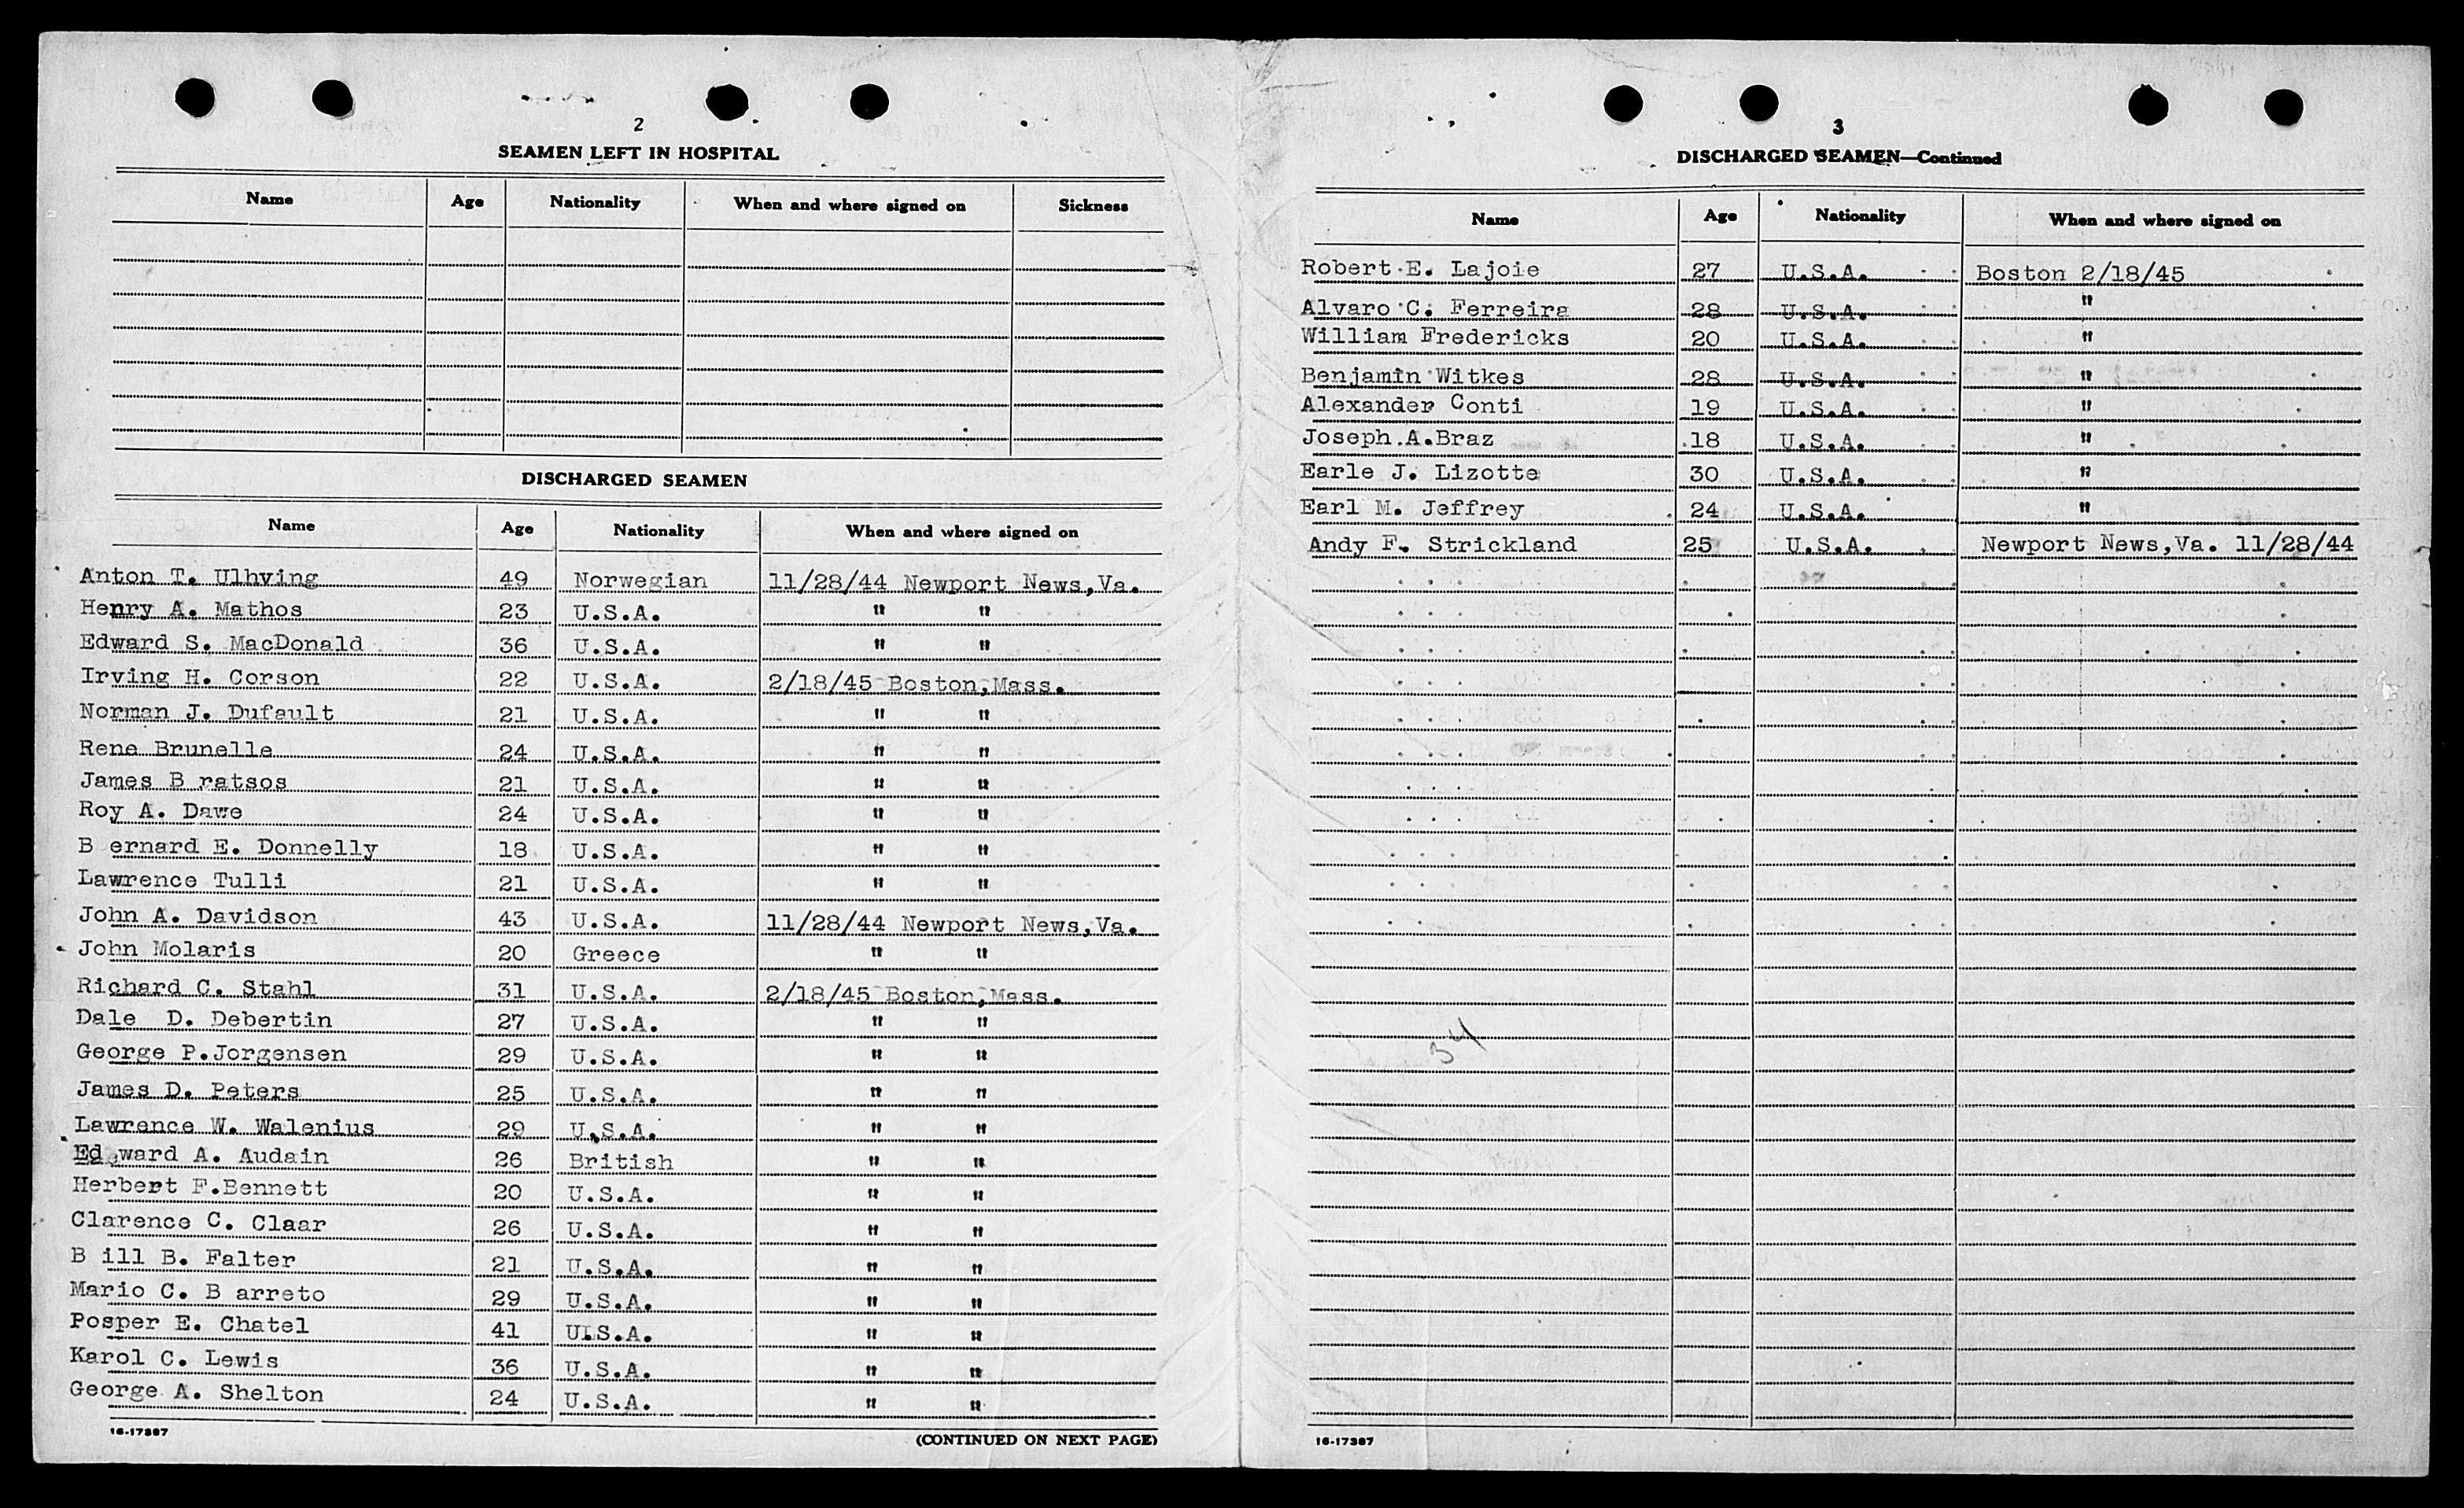 2
SEAMEN LEFT IN HOSPITAL
Name Age Nationality When and where signed on Sickness
DISCHARGED SEAMEN
Name Age Nationality When and where signed on
Anton T. Ulhving 49 Norwegian 11/28/44 Newport News,Va.
Henry A. Mathos 23 U.S.A. " "
Edward S. MacDonald 36 U.S.A. " "
Irving H. Corson 22 U.S.A. 2/18/45 Boston,Mass.
Norman J. Dufault 21 U.S.A. " "
Rene Brunelle 24 U.S.A. " "
James B ratsos 21 U.S.A. " "
Roy A. Dawe 24 U.S.A. " "
B ernard E. Donnelly 18 U.S.A. " "
Lawrence Tulli 21 U.S.A. " "
John A. Davidson 43 U.S.A. 11/28/44 Newport News,Va.
John Molaris 20 Greece " "
Richard C. Stahl 31 U.S.A. 2/18/45 Boston,Mass.
Dale D. Debertin 27 U.S.A. " "
George P.Jorgensen 29 U.S.A. " "
James D. Peters 25 U.S.A. " "
Lawrence W. Walenius 29 U.S.A. " "
Ed ward A. Audain 26 British " "
Herbert F.Bennett 20 U.S.A. " "
Clarence C. Claar 26 U.S.A. " "
B ill B. Falter 21 U.S.A. " "
Mario C. B arreto 29 U.S.A. " "
Posper E. Chatel 41 U.S.A. " "
Karol C. Lewis 36 U.S.A. " "
George A. Shelton 24 U.S.A. " "
16-17387 (CONTINUED ON NEXT PAGE)
3
DISCHARGED SEAMEN—Continued
Name Age Nationality When and where signed on
Robert E. Lajoie 27 U.S.A. Boston 2/18/45
Alvaro C. Ferreira 28 U.S.A. "
William Fredericks 20 U.S.A. "
Benjamin Witkes 28 U.S.A. "
Alexander Conti 19 U.S.A. "
Joseph.A.Braz 18 U.S.A. "
Earle J. Lizotte 30 U.S.A. "
Earl M. Jeffrey 24 U.S.A. "
Andy F. Strickland 25 U.S.A. Newport News,Va. 11/28/44
34
16-17387